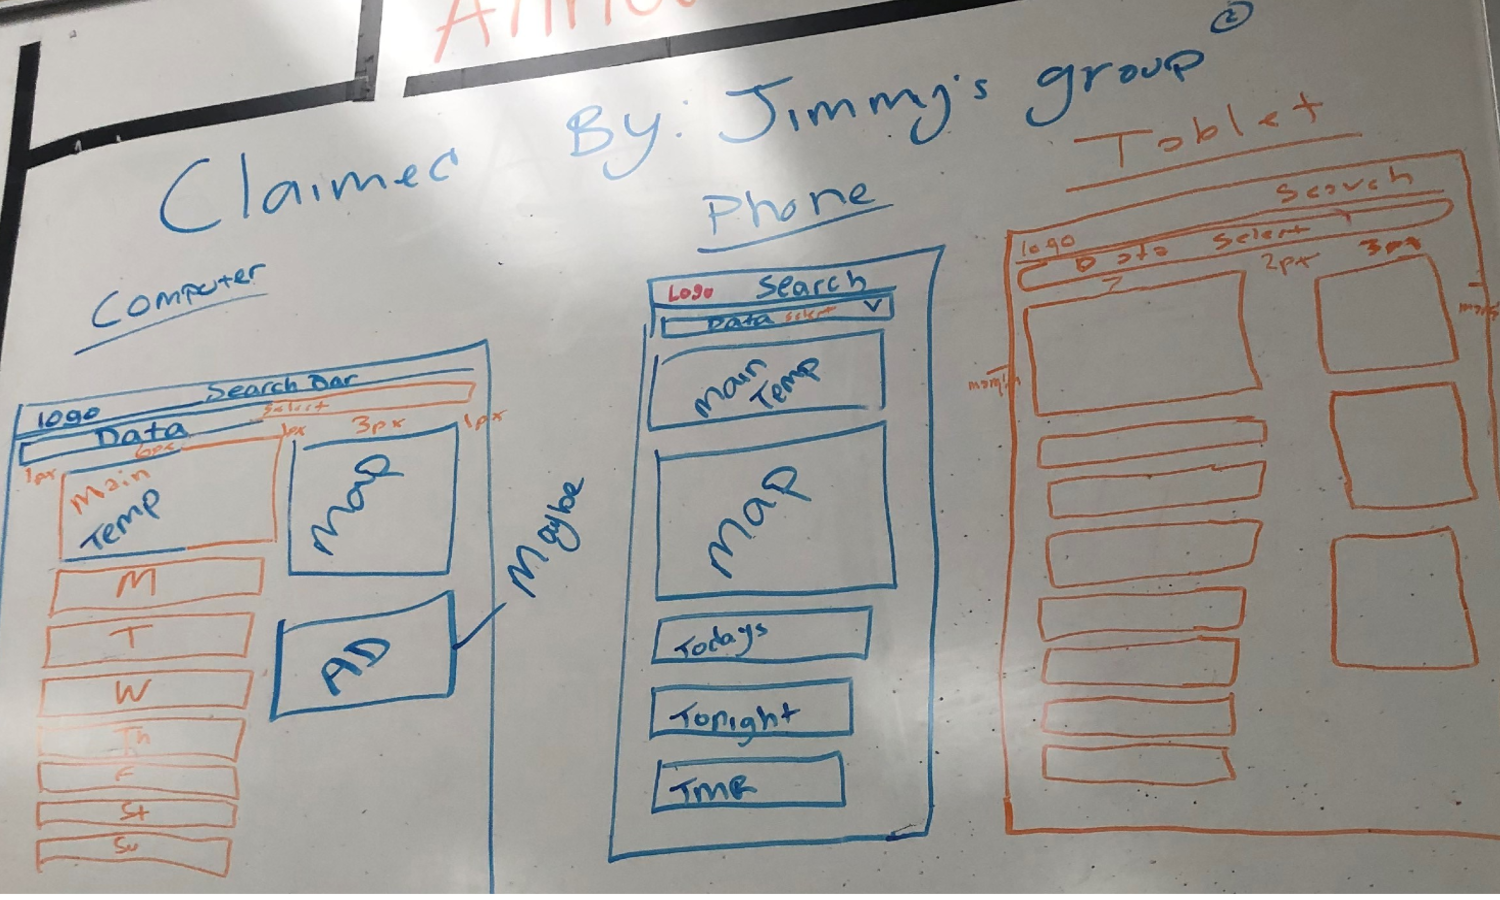 Claimed By: Jimmy's group
2
Computer
logo Search bar
Data select
1px 6px 1px 3px 1px
Main
Temp
Map
M
T
W
Th
F
St
Su
AD
Maybe
Phone
Logo Search
Data select
Main
Temp
Map
Todays
Tonight
TMR
Tablet
logo Search
Data Select
2px 3px
margin